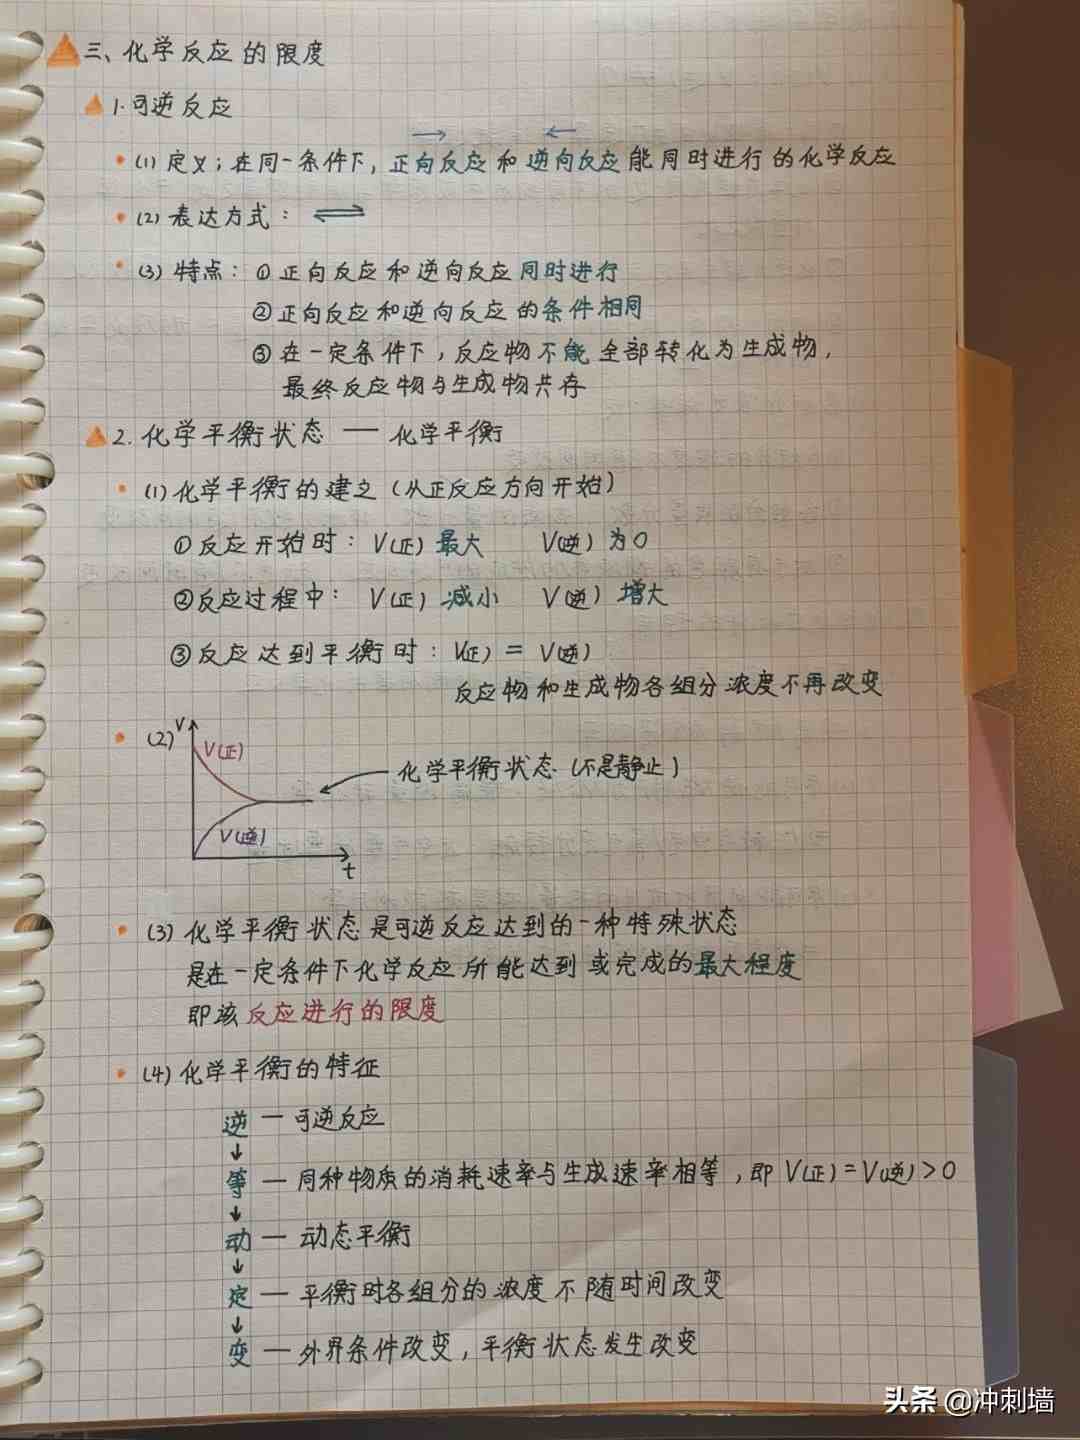 三、化学反应的限度
1.可逆反应
(1) 定义:在同一条件下,正向反应和逆向反应能同时进行的化学反应
(2) 表达方式: ⇌
(3) 特点: ①正向反应和逆向反应同时进行
②正向反应和逆向反应的条件相同
③在一定条件下,反应物不能全部转化为生成物,
最终反应物与生成物共存
2.化学平衡状态 — 化学平衡
(1) 化学平衡的建立(从正反应方向开始)
①反应开始时: V(正) 最大 V(逆) 为0
②反应过程中: V(正) 减小 V(逆) 增大
③反应达到平衡时: V(正) = V(逆)
反应物和生成物各组分浓度不再改变
(2) V
V(正)
化学平衡状态(不是静止)
V(逆)
t
(3) 化学平衡状态是可逆反应达到的一种特殊状态
是在一定条件下化学反应所能达到或完成的最大程度
即该反应进行的限度
(4) 化学平衡的特征
逆 — 可逆反应
↓
等 — 同种物质的消耗速率与生成速率相等,即 V(正)=V(逆)>0
↓
动 — 动态平衡
↓
定 — 平衡时各组分的浓度不随时间改变
↓
变 — 外界条件改变,平衡状态发生改变
头条 @冲刺墙